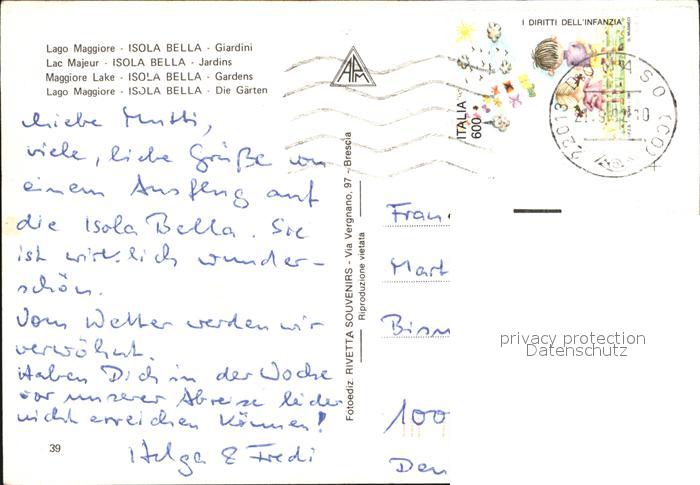 Lago Maggiore · ISOLA BELLA · Giardini
Lac Majeur · ISOLA BELLA · Jardins
Maggiore Lake · ISOLA BELLA · Gardens
Lago Maggiore · ISOLA BELLA · Die Gärten
APM
I DIRITTI DELL'INFANZIA
ITALIA
600
22013 DOMASO (CO)
Liebe Mutti,
viele, liebe Grüße von
einem Ausflug auf
die Isola Bella. Sie
ist wirklich wunder-
schön.
Vom Wetter werden wir
verwöhnt.
Haben Dich in der Woche
vor unserer Abreise leider
nicht erreichen können!
Helga & Fredi
39
Fotoediz. RIVETTA SOUVENIRS - Via Vergnano, 97 - Brescia
Riproduzione vietata
Frau
Mart
Bism
100
Den
privacy protection
Datenschutz